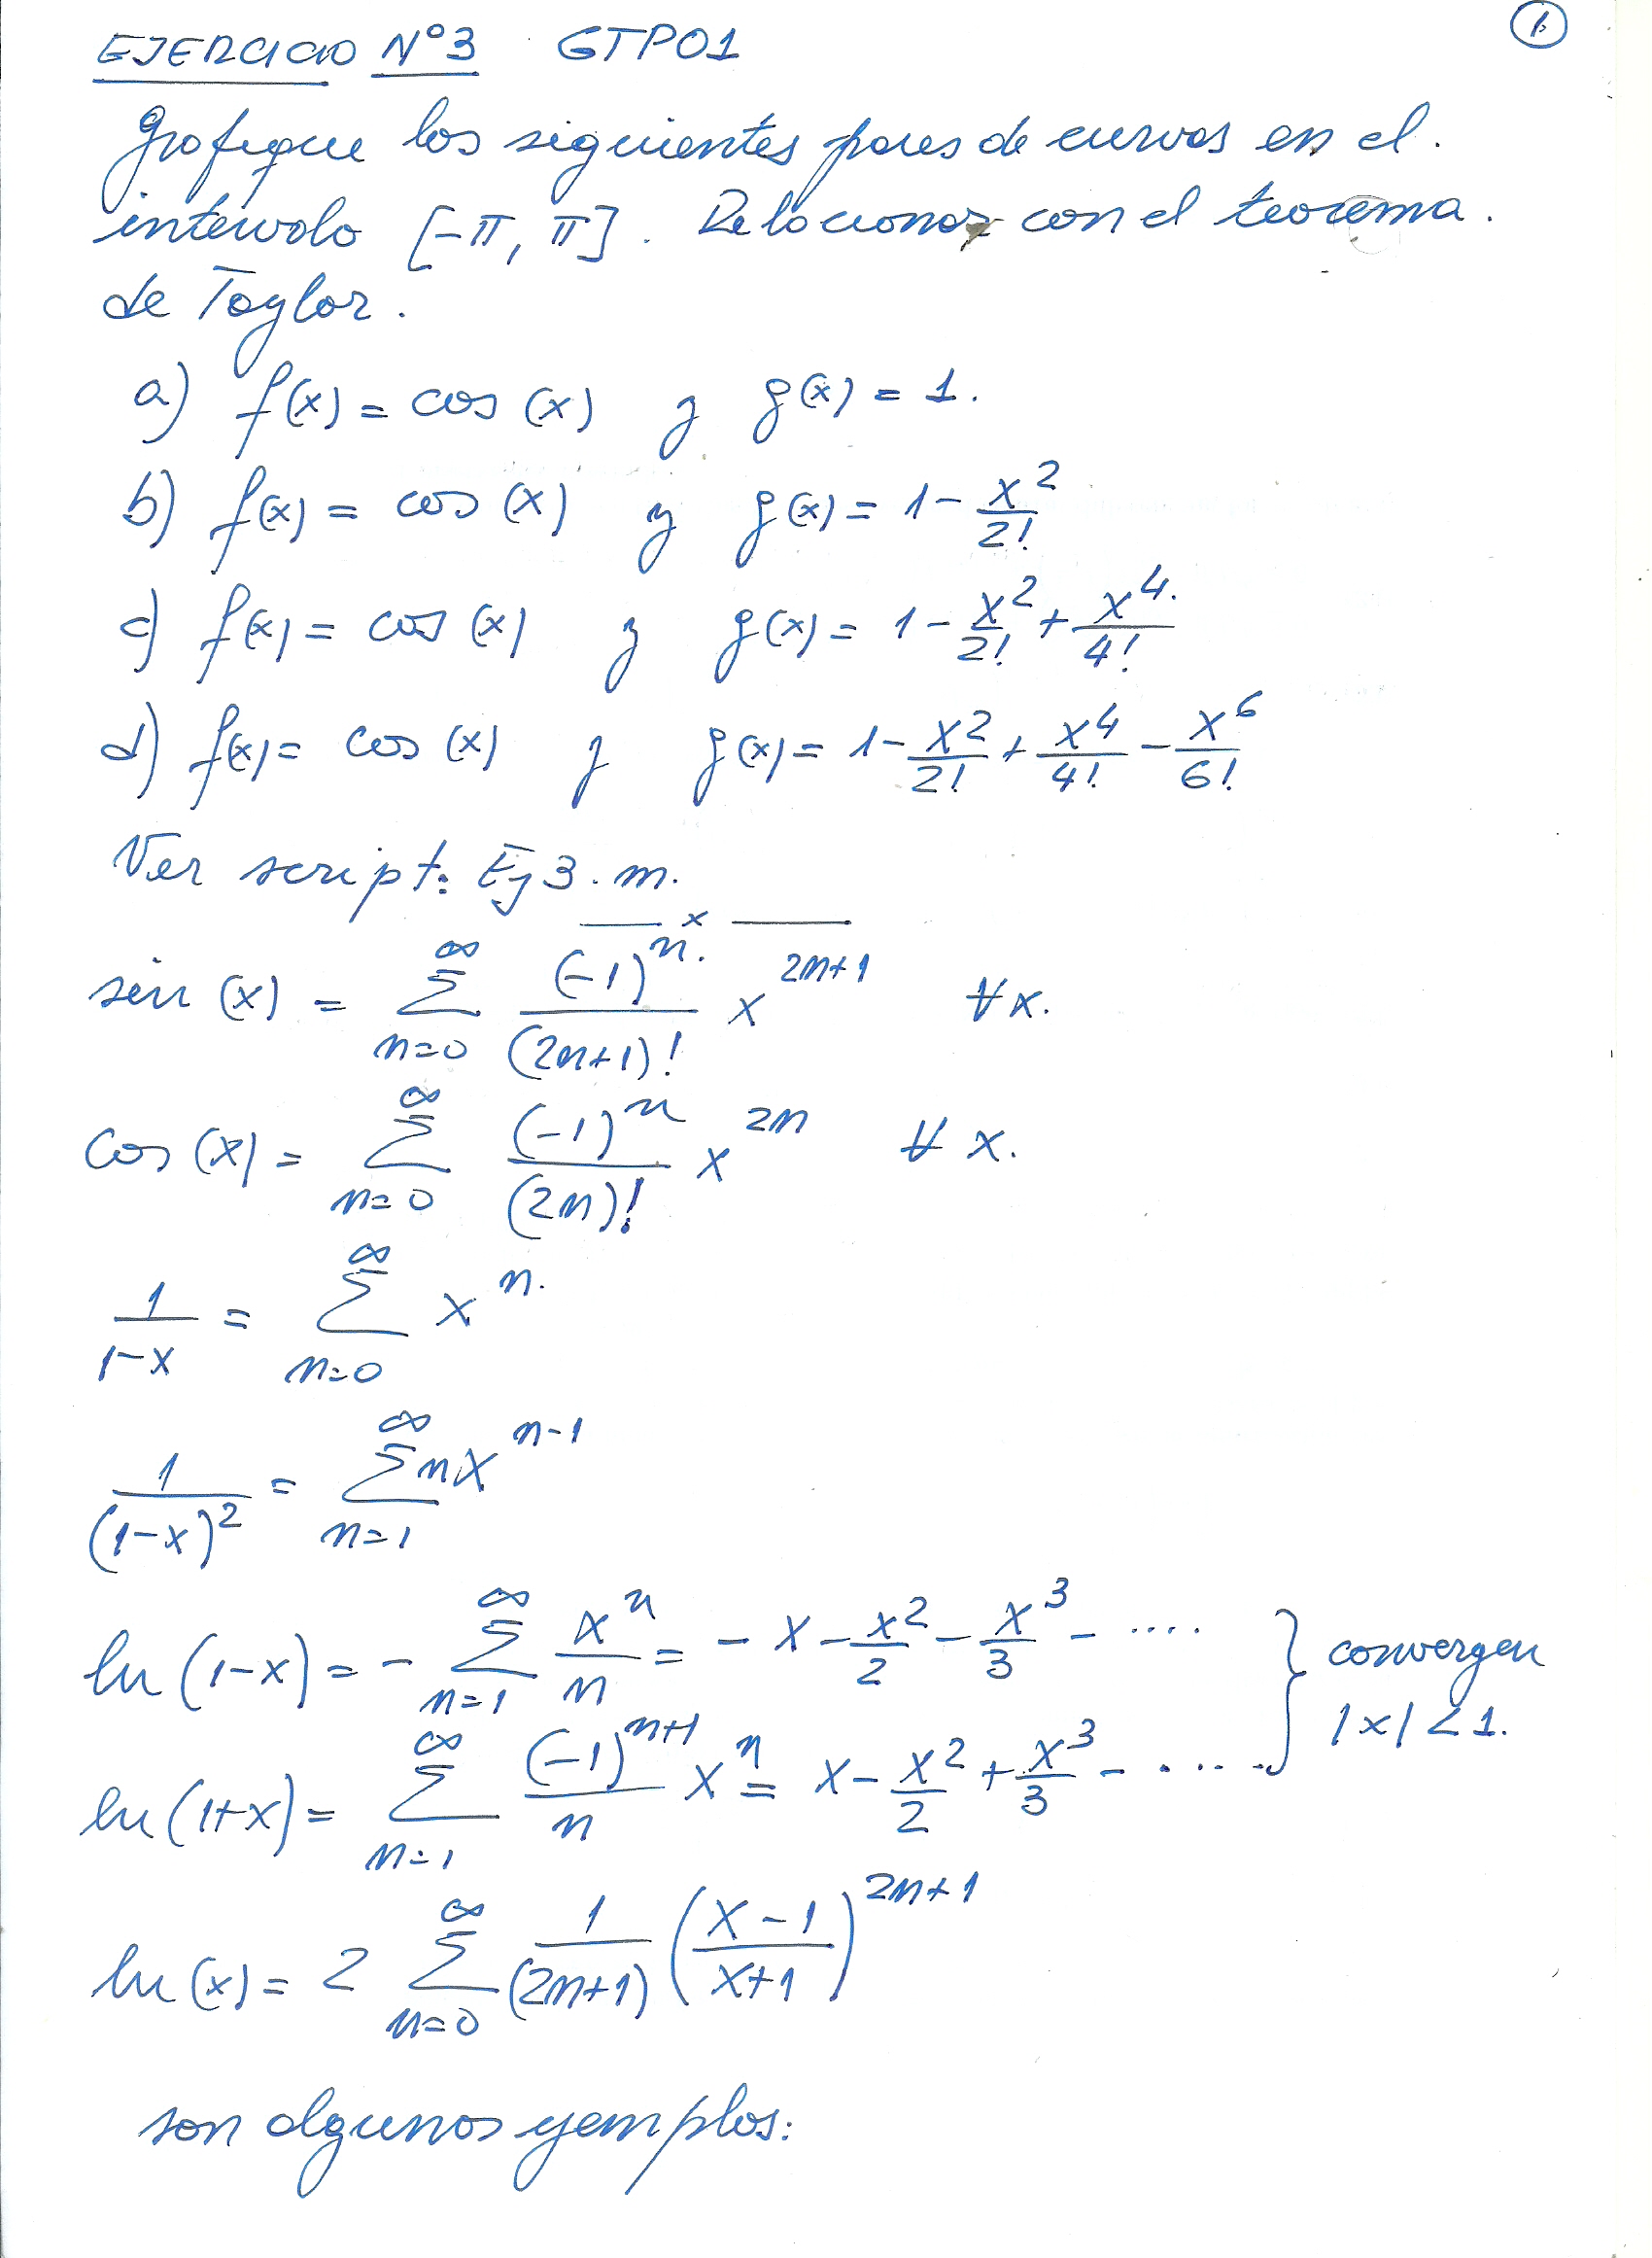 EJERCICIO Nº3 GTP01
Grafique los siguientes pares de curvas en el.
intervalo [-π, π]. Relacionar con el teorema.
de Taylor.
a) f(x) = cos (x) y g(x) = 1.
b) f(x) = cos (x) y g(x) = 1 - x²/2!
c) f(x) = cos (x) y g(x) = 1 - x²/2! + x⁴/4!
d) f(x) = cos (x) y g(x) = 1 - x²/2! + x⁴/4! - x⁶/6!
Ver script: Ej3.m.
x
sen (x) = ∑_{n=0}^{∞} (-1)^n/(2n+1)! x^{2n+1} ∀x.
cos (x) = ∑_{n=0}^{∞} (-1)^n/(2n)! x^{2n} ∀ x.
1/(1-x) = ∑_{n=0}^{∞} x^n.
1/(1-x)² = ∑_{n=1}^{∞} nx^{n-1}
ln (1-x) = - ∑_{n=1}^{∞} x^n/n = - x - x²/2 - x³/3 - .... } convergen
ln (1+x) = ∑_{n=1}^{∞} (-1)^{n+1}/n x^n = x - x²/2 + x³/3 - ..... |x| < 1.
ln (x) = 2 ∑_{n=0}^{∞} 1/(2n+1) ((x-1)/(x+1))^{2n+1}
son algunos ejemplos: